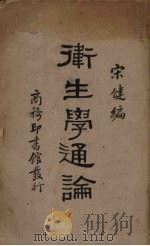 宋健編
衛生學通論
商務印書館發行
www.mtoou.info